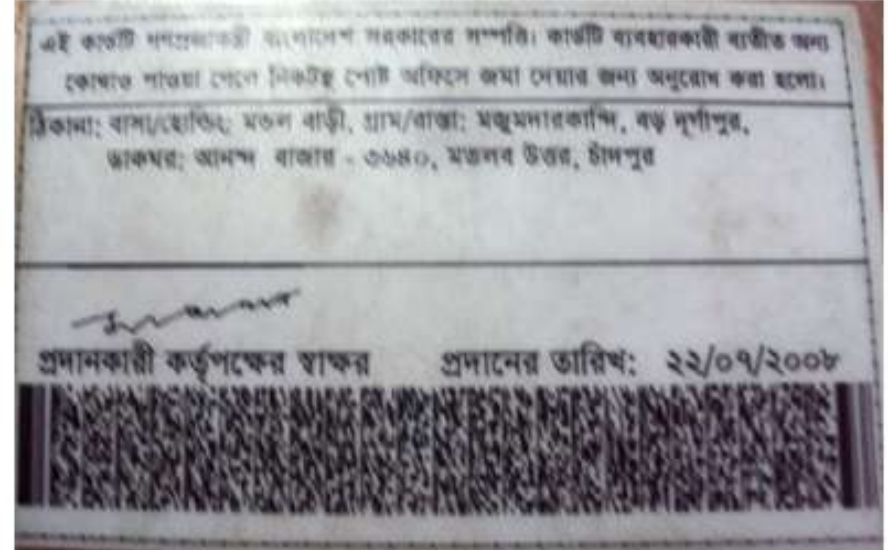 এই কার্ডটি গণপ্রজাতন্ত্রী বাংলাদেশ সরকারের সম্পত্তি। কার্ডটি ব্যবহারকারী ব্যতীত অন্য
কোথাও পাওয়া গেলে নিকটস্থ পোষ্ট অফিসে জমা দেয়ার জন্য অনুরোধ করা হলো।
ঠিকানা: বাসা/হোল্ডিং: মন্ডল বাড়ী, গ্রাম/রাস্তা: মজুমদারকান্দি, বড় দূর্গাপুর,
ডাকঘর: আনন্দ বাজার - ৩৬৪০, মতলব উত্তর, চাঁদপুর
প্রদানকারী কর্তৃপক্ষের স্বাক্ষর প্রদানের তারিখ: ২২/০৭/২০০৮